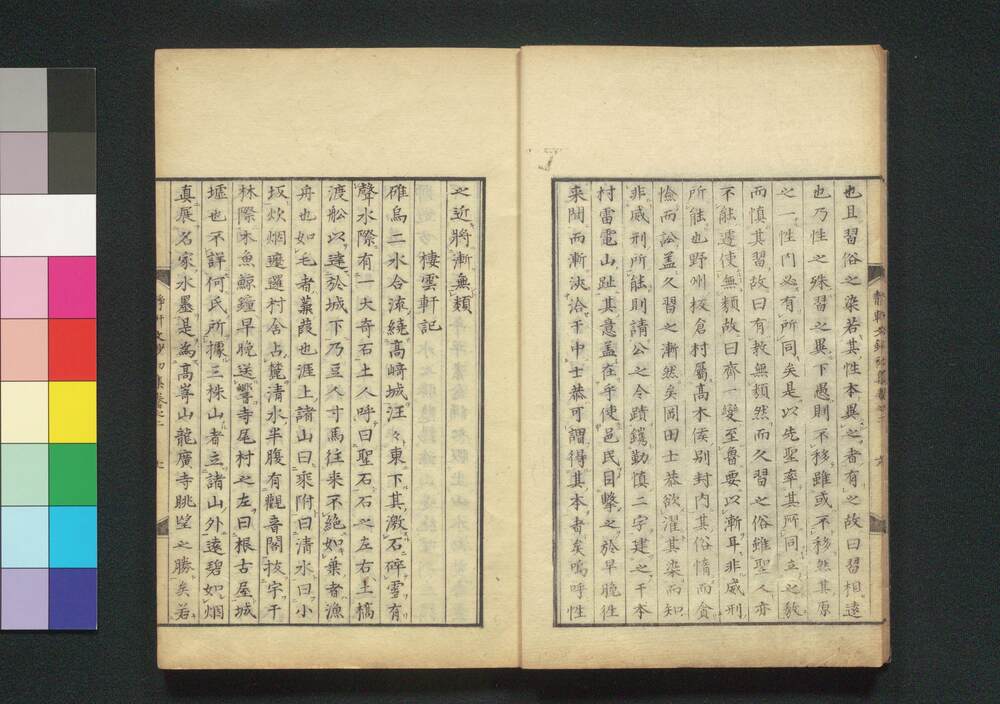 也且習俗之染若其性本異之者有之故曰習相遠
也乃性之殊習之異下愚則不移雖或不移然其原
之一性内必有所同矣是以先聖率其所同立之教
而慎其習故曰有教無類然而久習之俗雖聖人亦
不能遽使無類故曰齊一變至魯要以漸耳非威刑
所能也野州板倉村屬高木侯別封内其俗惰而貪
儉而訟蓋久習之漸然矣岡田士恭欲濯其染而知
非威刑所能則請公之令蹟鐫勤慎二字建之于本
村雷電山趾其意蓋在乎使邑民目擊之於早晚往
来間而漸浹洽于中士恭可謂得其本者矣嗚呼性
之近將漸無類
棲雲軒記
碓烏二水合流繞高崎城汪々東下其激石碎雪有
聲水際有一大奇石土人呼曰聖石石之左右土橋
渡舩以達於城下乃豆人寸馬往来不絶如葉者漁
舟也如毛者蒹葭也涯上諸山曰乘附曰清水曰小
坂炊烟遶邐村舍占麓清水半腹有觀音閣抜宇于
林際木魚鯨鐘早晚送響寺尾村之左曰根古屋城
墟也不詳何氏所據三株山者立諸山外遠碧如烟
真展名家水墨是為高峯山龍廣寺眺望之勝矣若